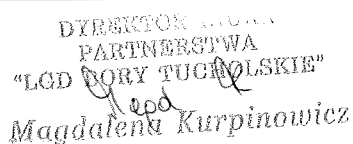 DYREKTOR
PARTNERSTWA
"LGD BORY TUCHOLSKIE"
Magdalena Kurpinowicz